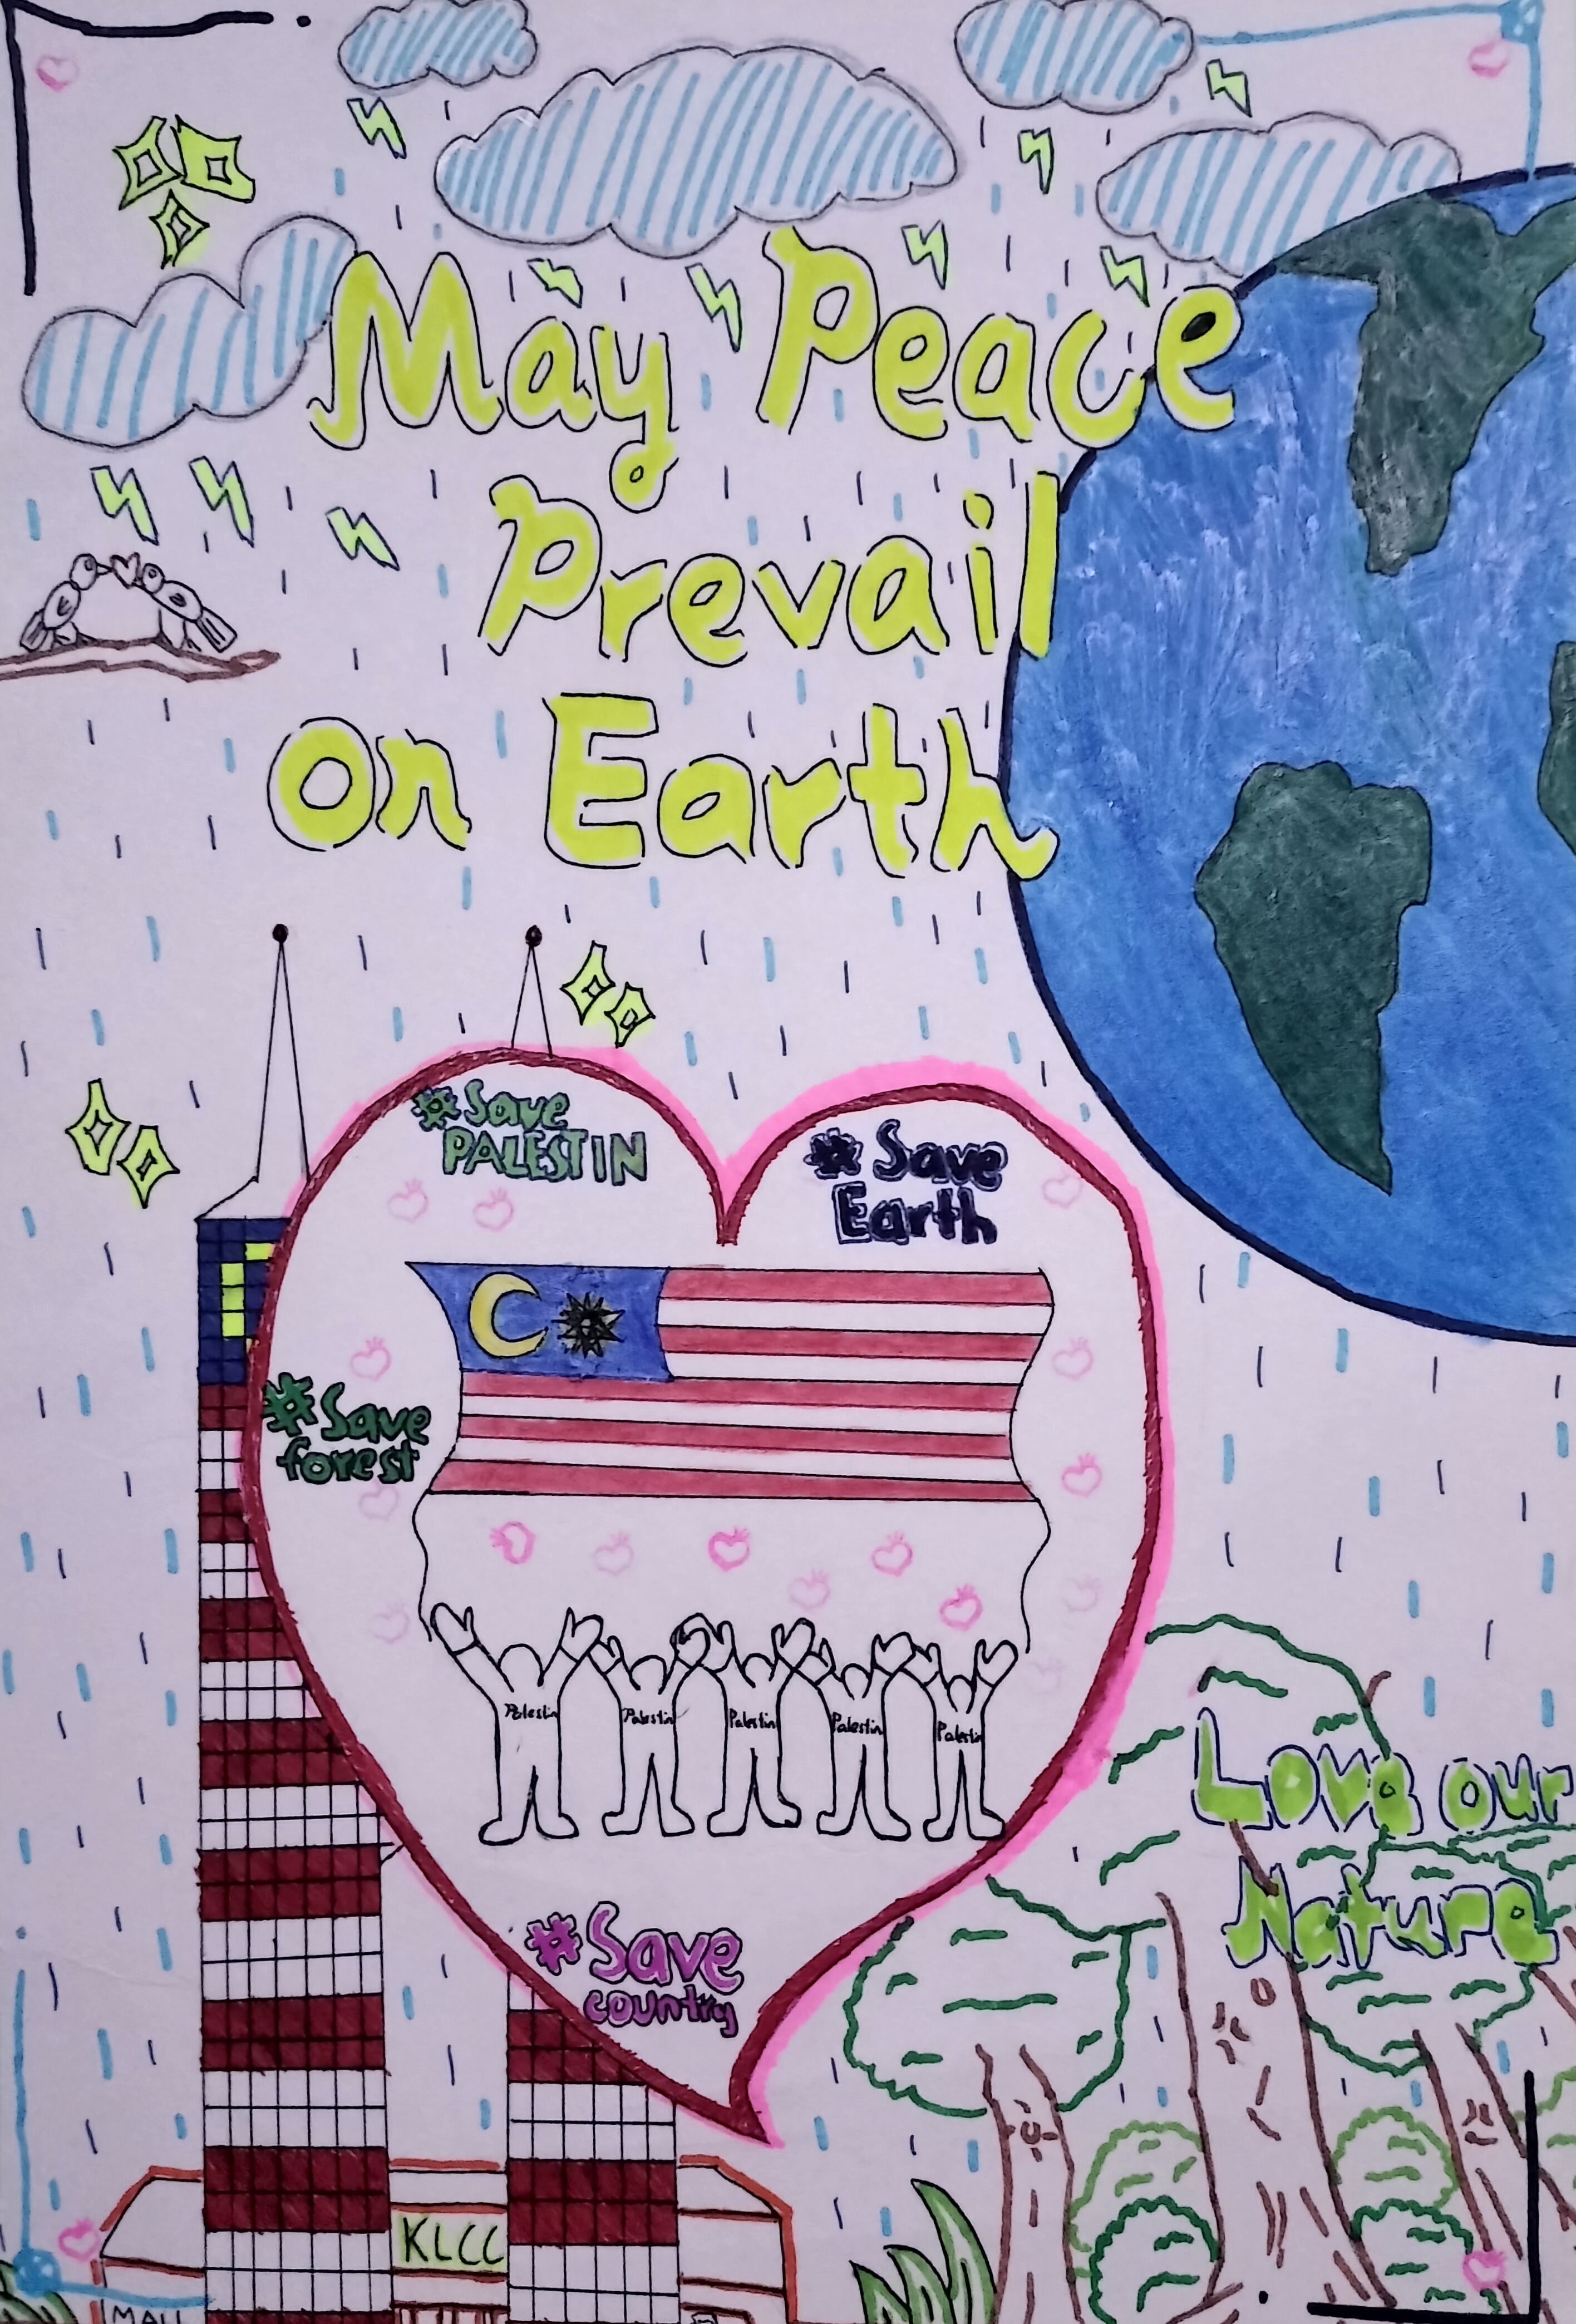 May Peace
Prevail
on Earth
#Save
PALESTIN
#Save
Earth
#Save
forest
Palestin Palestin Palestin Palestin Palestin
#Save
country
Love our
Nature
KLCC
MALL